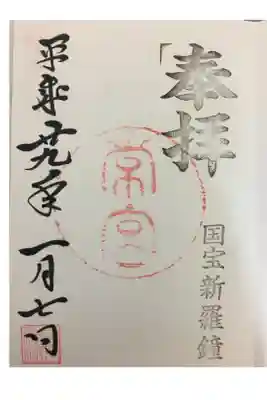 奉拝
国宝新羅鐘
常宮
平成廿九年 一月七日